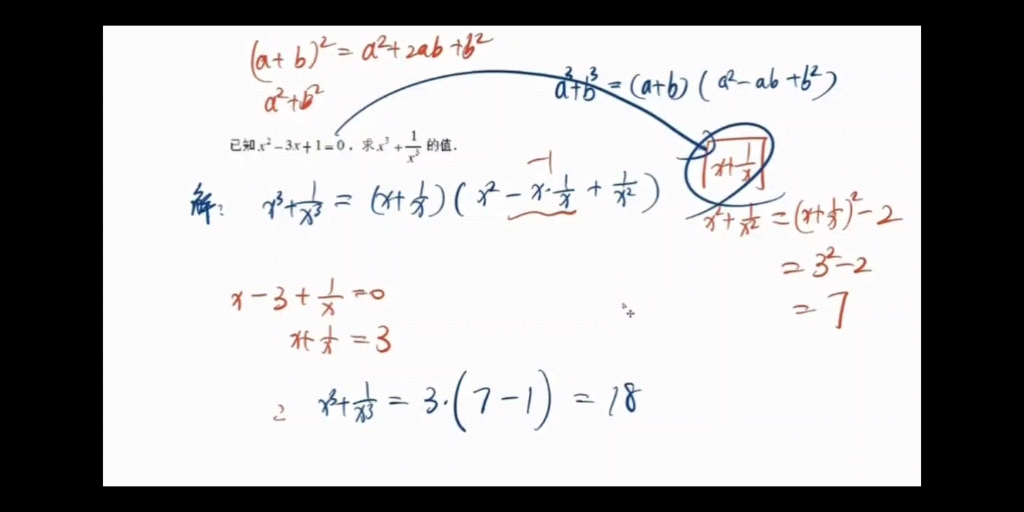 (a+b)²=a²+2ab+b²
a³+b³=(a+b)(a²-ab+b²)
a²+b²
已知x²-3x+1=0，求x³+1/x³的值.
x+1/x
-1
解: x³+1/x³=(x+1/x)(x²-x·1/x+1/x²)
x²+1/x²=(x+1/x)²-2
=3²-2
=7
x-3+1/x=0
x+1/x=3
x³+1/x³=3·(7-1)=18